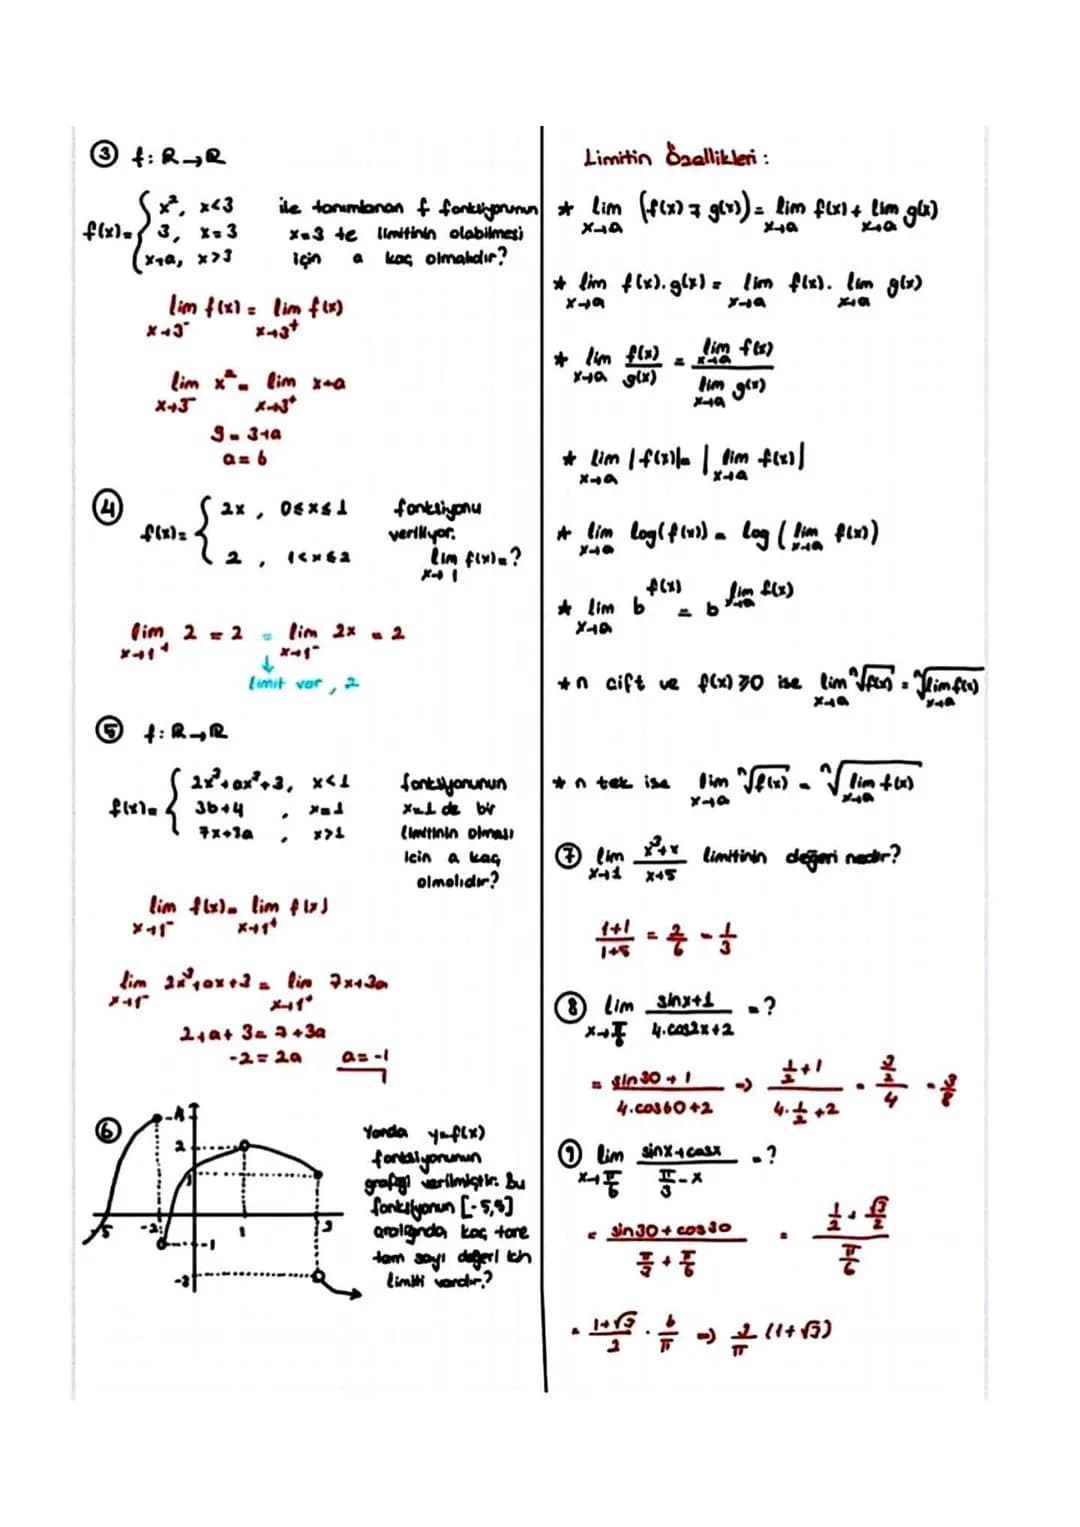 ③ f: R→R
f(x)= { x², x<3
3, x=3
x+a, x>3
ile tanımlanan f fonksiyonunun
x=3 te limitinin olabilmesi
için a kaç olmalıdır?
lim f(x) = lim f(x)
x→3⁻ x→3⁺
lim x² = lim x+a
x→3⁻ x→3⁺
9 = 3+a
a = 6
④ f(x)= { 2x, 0≤x≤1
2, 1<x≤2
fonksiyonu
veriliyor.
lim f(x)=?
x→1
lim 2 = 2 = lim 2x = 2
x→1⁺ x→1⁻
↓
limit var, 2
⑤ f: R→R
f(x)= { 2x³+ax²+3, x<1
3b+4, x=1
7x+3a, x>1
fonksiyonunun
x=1 de bir
limitinin olması
icin a kaç
olmalıdır?
lim f(x) = lim f(x)
x→1⁻ x→1⁺
lim 2x³+ax+3 = lim 7x+3a
x→1⁻ x→1⁺
2+a+3 = 7+3a
-2 = 2a a = -1
⑥
2
1
-5 -2 1 3
-1
-3
Yanda y=f(x)
fonksiyonunun
grafiği verilmiştir. Bu
fonksiyonun
aralığında kaç tane
tam sayı değeri için
limiti vardır?
Limitin Özellikleri :
* lim (f(x) ∓ g(x)) = lim f(x) + lim g(x)
x→a x→a x→a
* lim f(x).g(x) = lim f(x). lim g(x)
x→a x→a x→a
* lim f(x)/g(x) = lim f(x) / lim g(x)
x→a x→a x→a
* lim |f(x)| = | lim f(x)|
x→a x→a
* lim log(f(x)) = log ( lim f(x))
x→a x→a
* lim b^f(x) = b^lim f(x)
x→a x→a
* n cift ve f(x)≥0 ise lim ⁿ√f(x) = ⁿ√lim f(x)
x→a x→a
* n tek ise lim ⁿ√f(x) = ⁿ√lim f(x)
x→a x→a
⑦ lim (x³+x)/(x+5) limitinin değeri nedir?
x→1
(1+1)/(1+5) = 2/6 = 1/3
⑧ lim (sinx+1)/(4.cos2x+2) = ?
x→π/6
= (sin30+1)/(4.cos60+2) ⇒ (1/2+1)/(4.1/2+2) = (3/2)/4 = 3/8
⑨ lim (sinx+cosx)/(π/3-x) = ?
x→π/6
= (sin30+cos30)/(π/3+π/6) = (1/2+√3/2)/(π/6)
= (1+√3)/2 . 6/π ⇒ 3/π (1+√3)